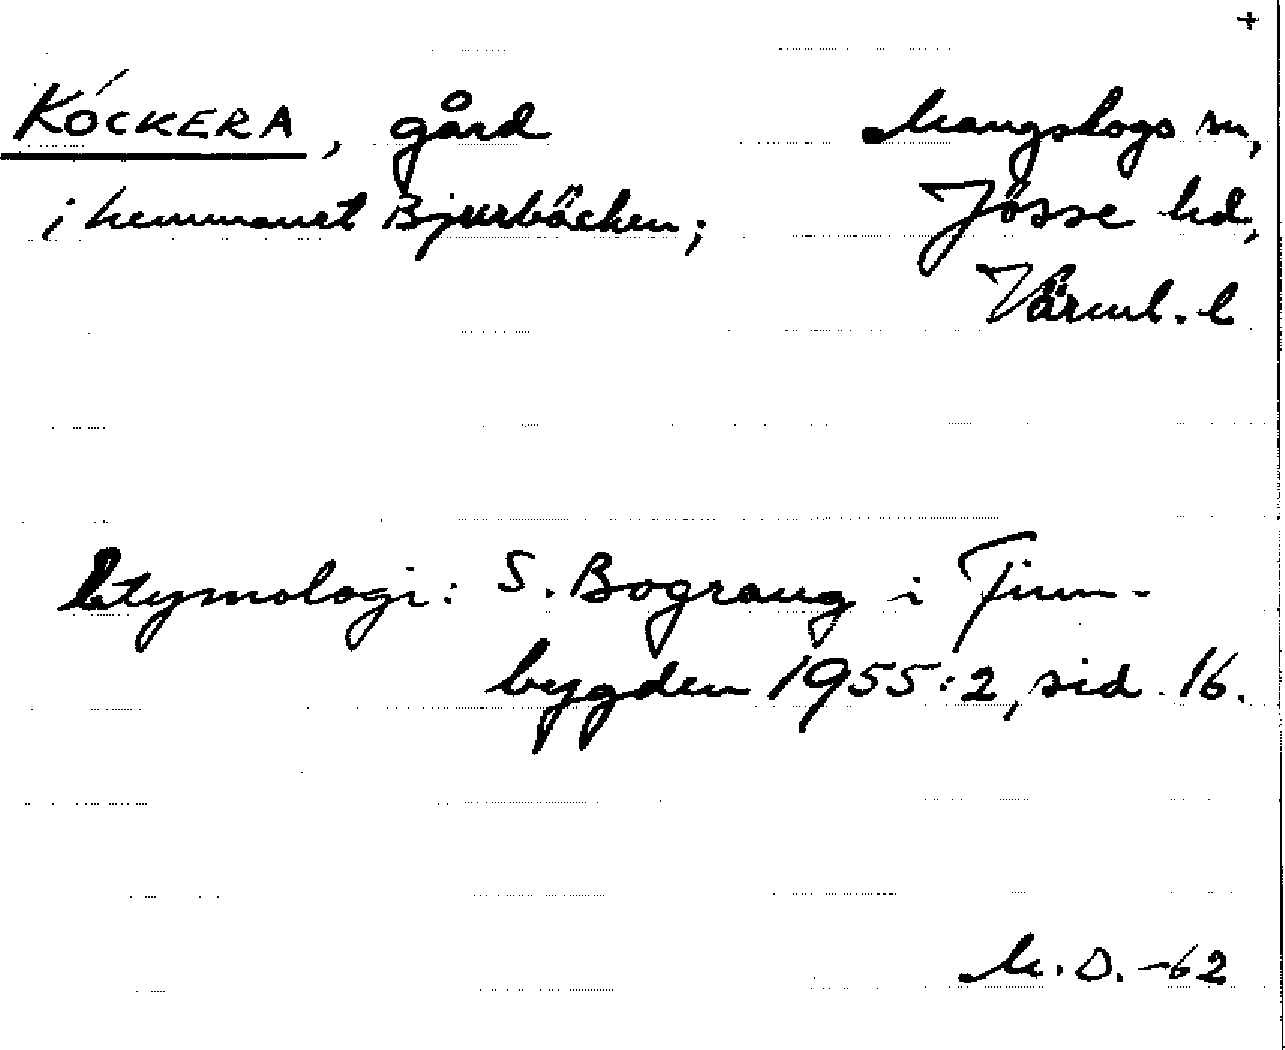 +
KÓCKERA, gård Mangskogs sn,
i hemmanet Bjurbäcken; Jösse hd,
Värml. l
Etymologi: S. Bograng i Finn-
bygden 1955:2, sid. 16.
M.D. -62